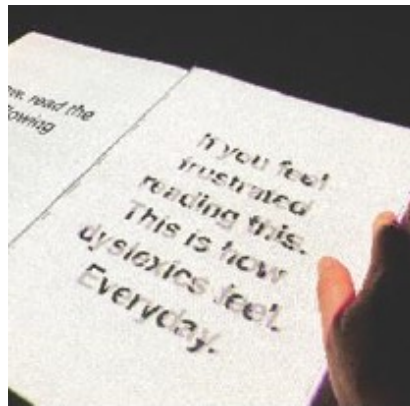 read the
If you feel
frustrated
reading this.
This is how
dyslexics feel.
Everyday.